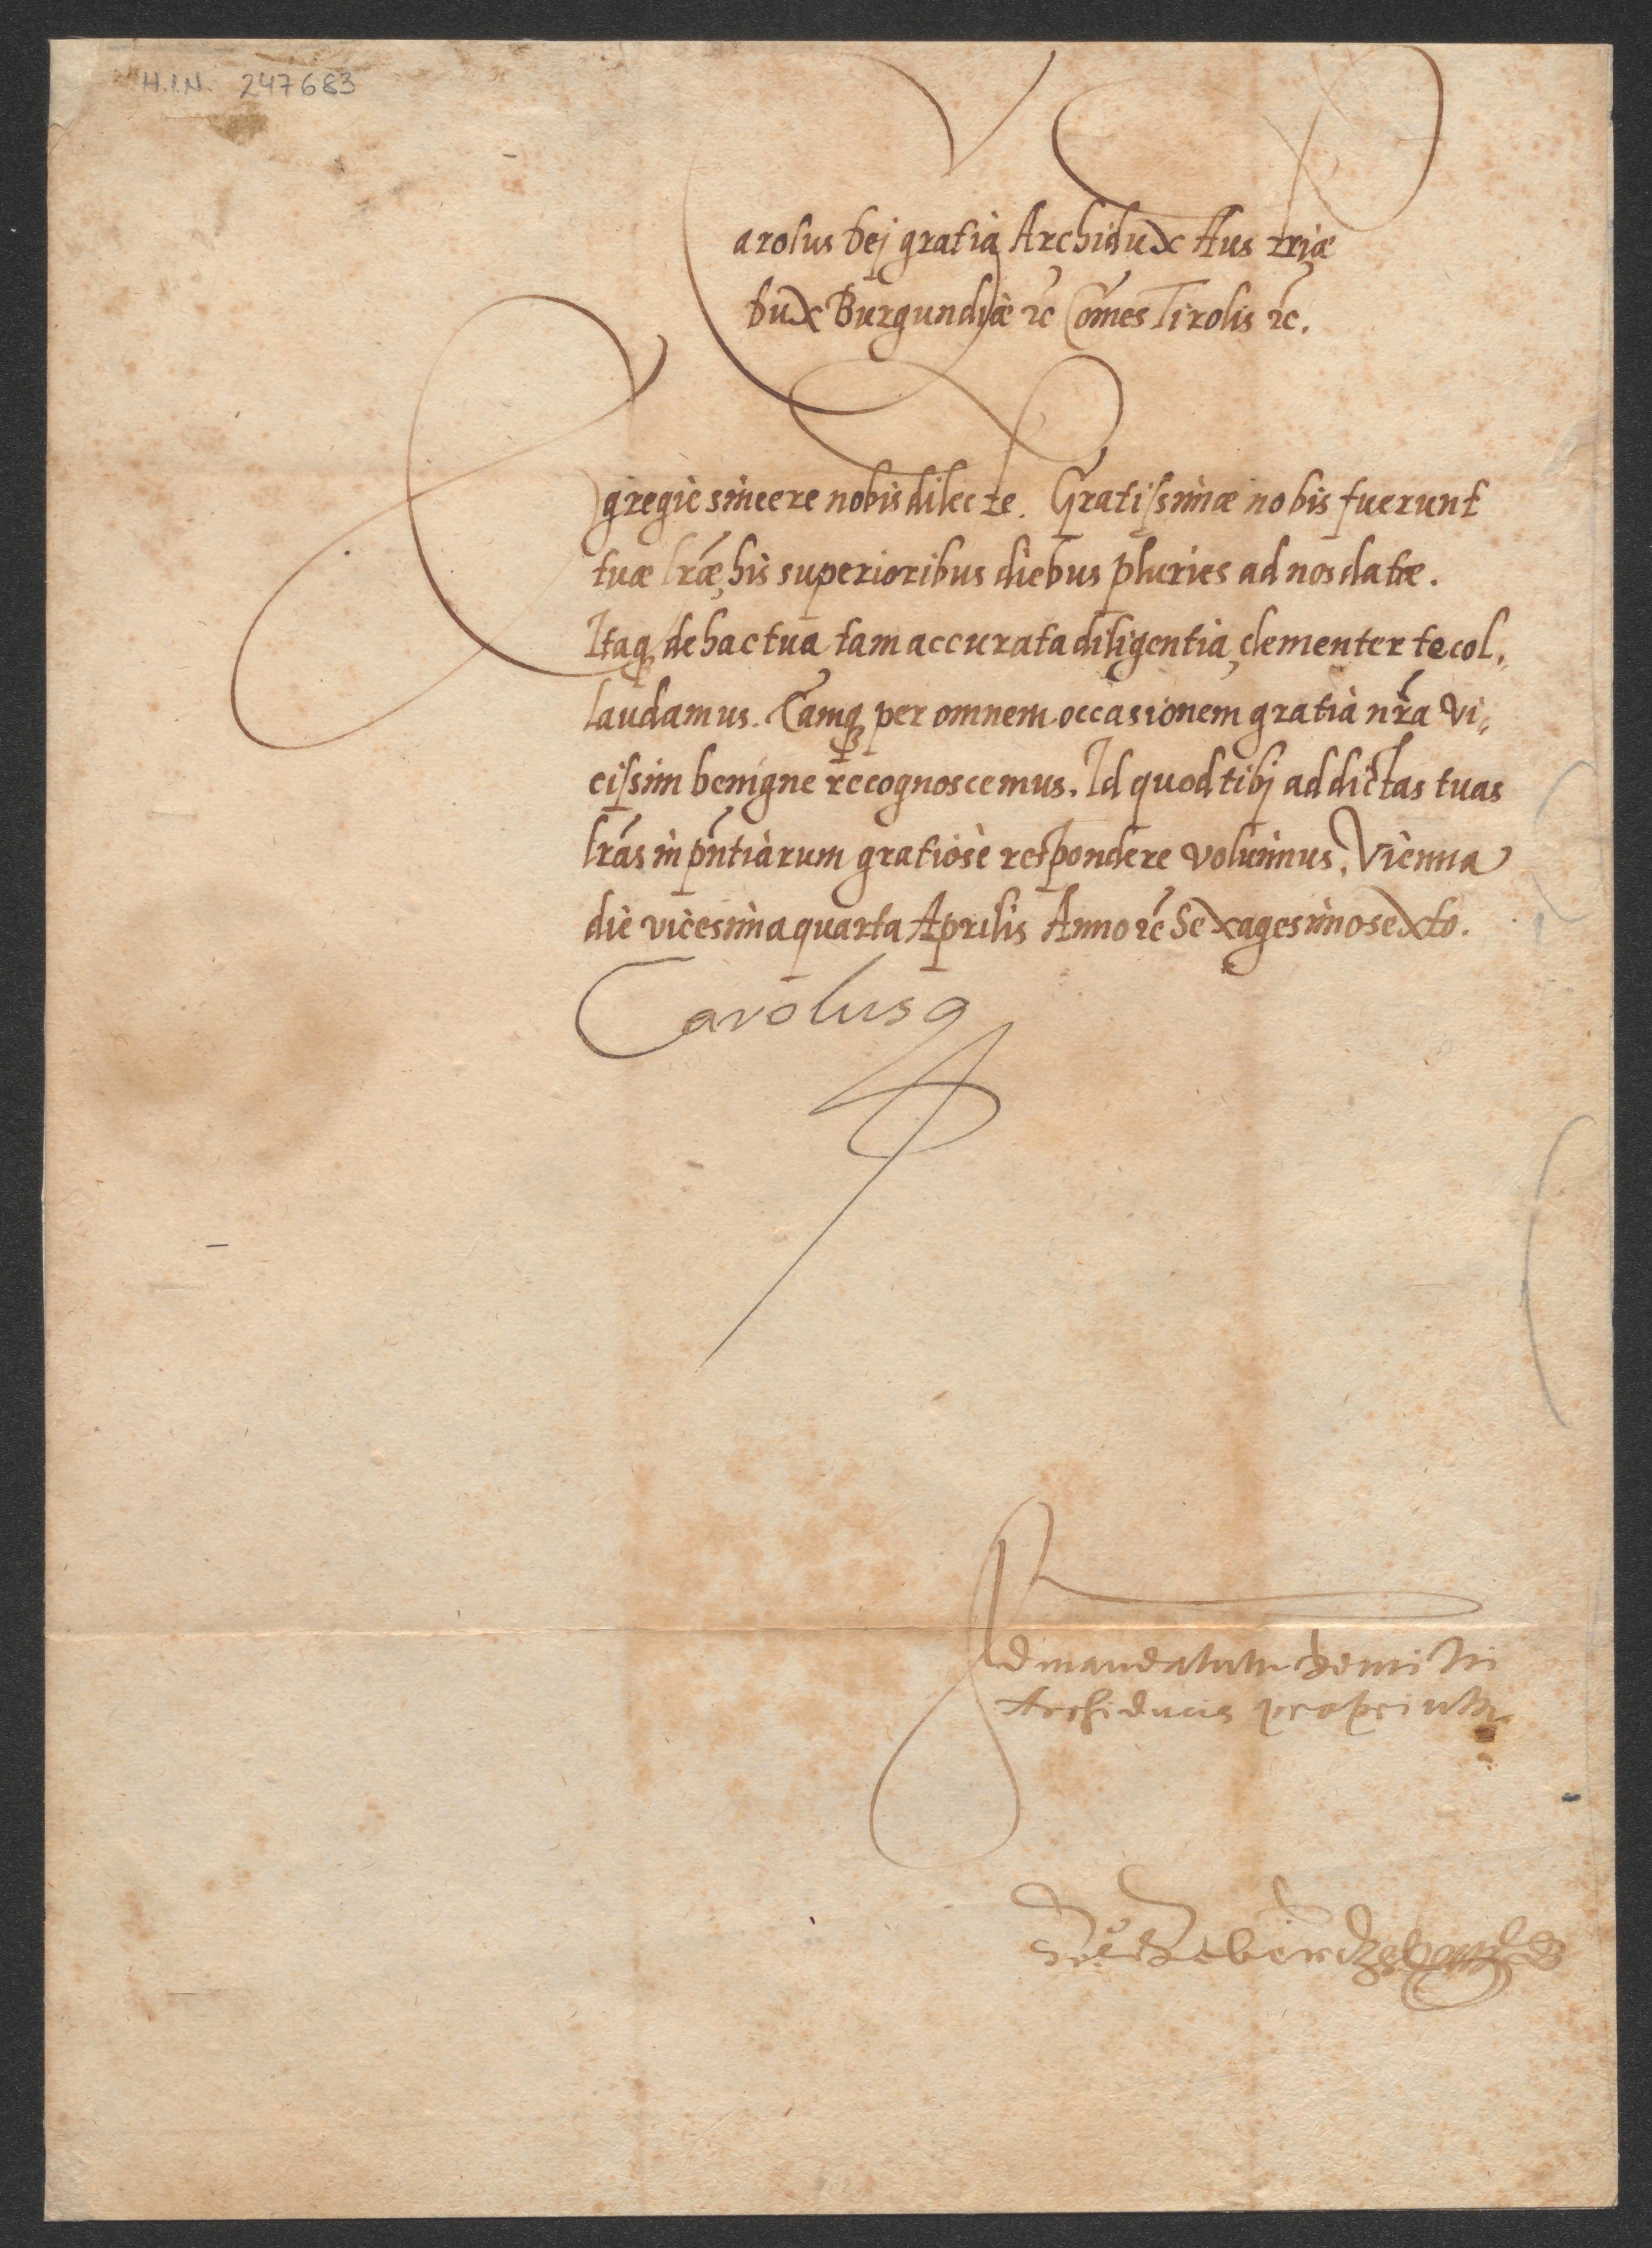 H.I.N. 247683
Carolus Dej gratia Archidux Austriæ
Dux Burgundiæ ꝛc̃ Com̃es Tirolis ꝛc̃.
Egregie sincere nobis dilecte. Gratissimæ nobis fuerunt
tuæ lr̃æ, his superioribus diebus pluries ad nos datæ.
Itaq de hac tua tam accurata diligentia, clementer te col„
laudamus. Eamq per omnem occasionem gratia nr̃a vi„
cissim benigne recognoscemus. Id quod tibj ad dictas tuas
lr̃as in pñtiarum gratiosè respondere voluimus. Vienna
die vicesima quarta Aprilis Anno ꝛc̃ Sexagesimosexto.
Carolus
Ad mandatum Domini
Archiducis proprium